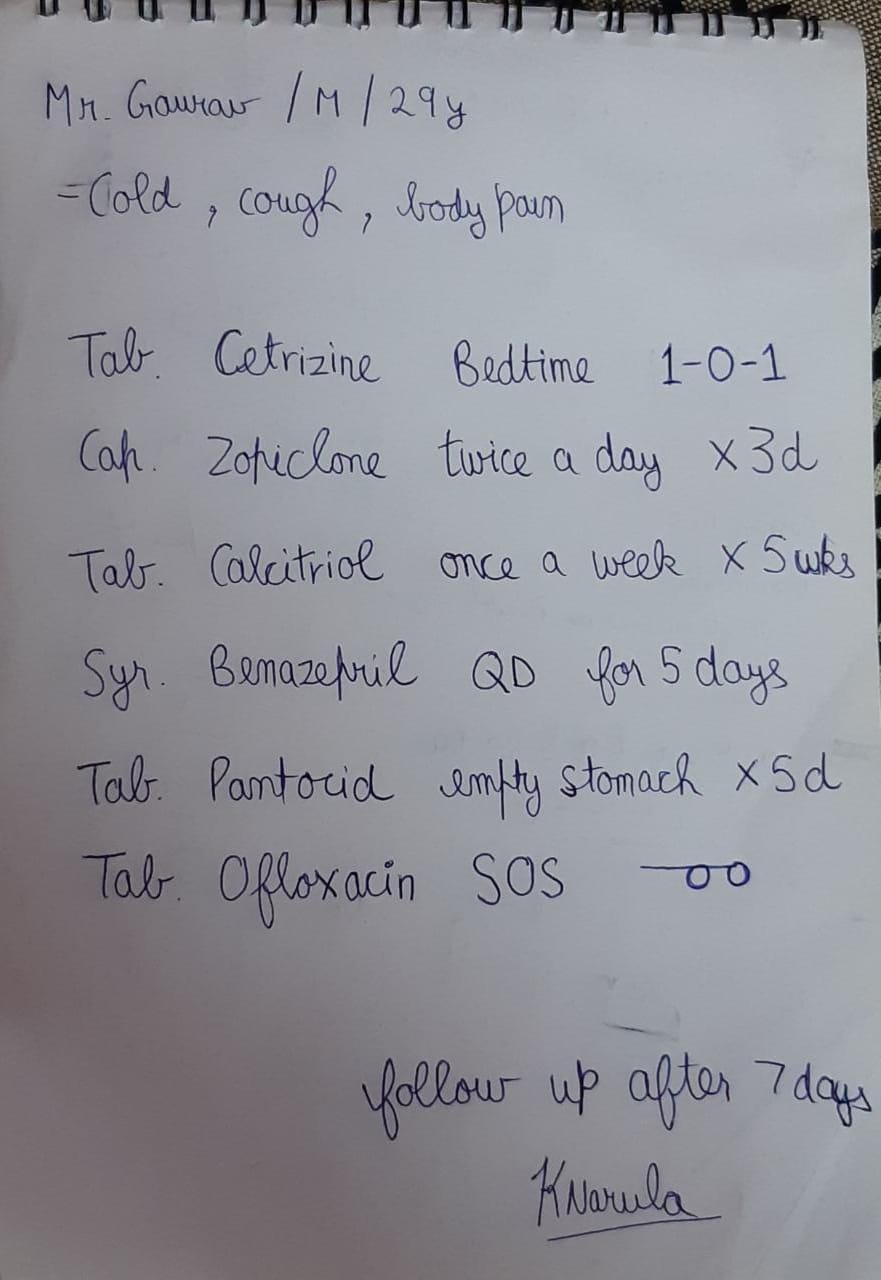 Mr. Gaurav /M/29y
- Cold, cough, body pain
Tab. Cetrizine Bedtime 1-0-1
Cap. Zopiclone twice a day x 3d
Tab. Calcitriol once a week x 5 wks
Syr. Benazepril QD for 5 days
Tab. Pantocid empty stomach x 5d
Tab. Ofloxacin SOS
follow up after 7 days
KNarula